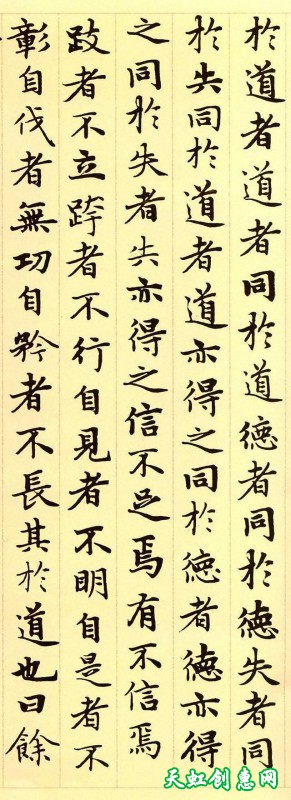 於道者道者同於道德者同於德失者同
於失同於道者道亦得之同於德者德亦得
之同於失者失亦得之信不足焉有不信焉
跂者不立跨者不行自見者不明自是者不
彰自伐者無功自矜者不長其於道也曰餘
天虹创惠网